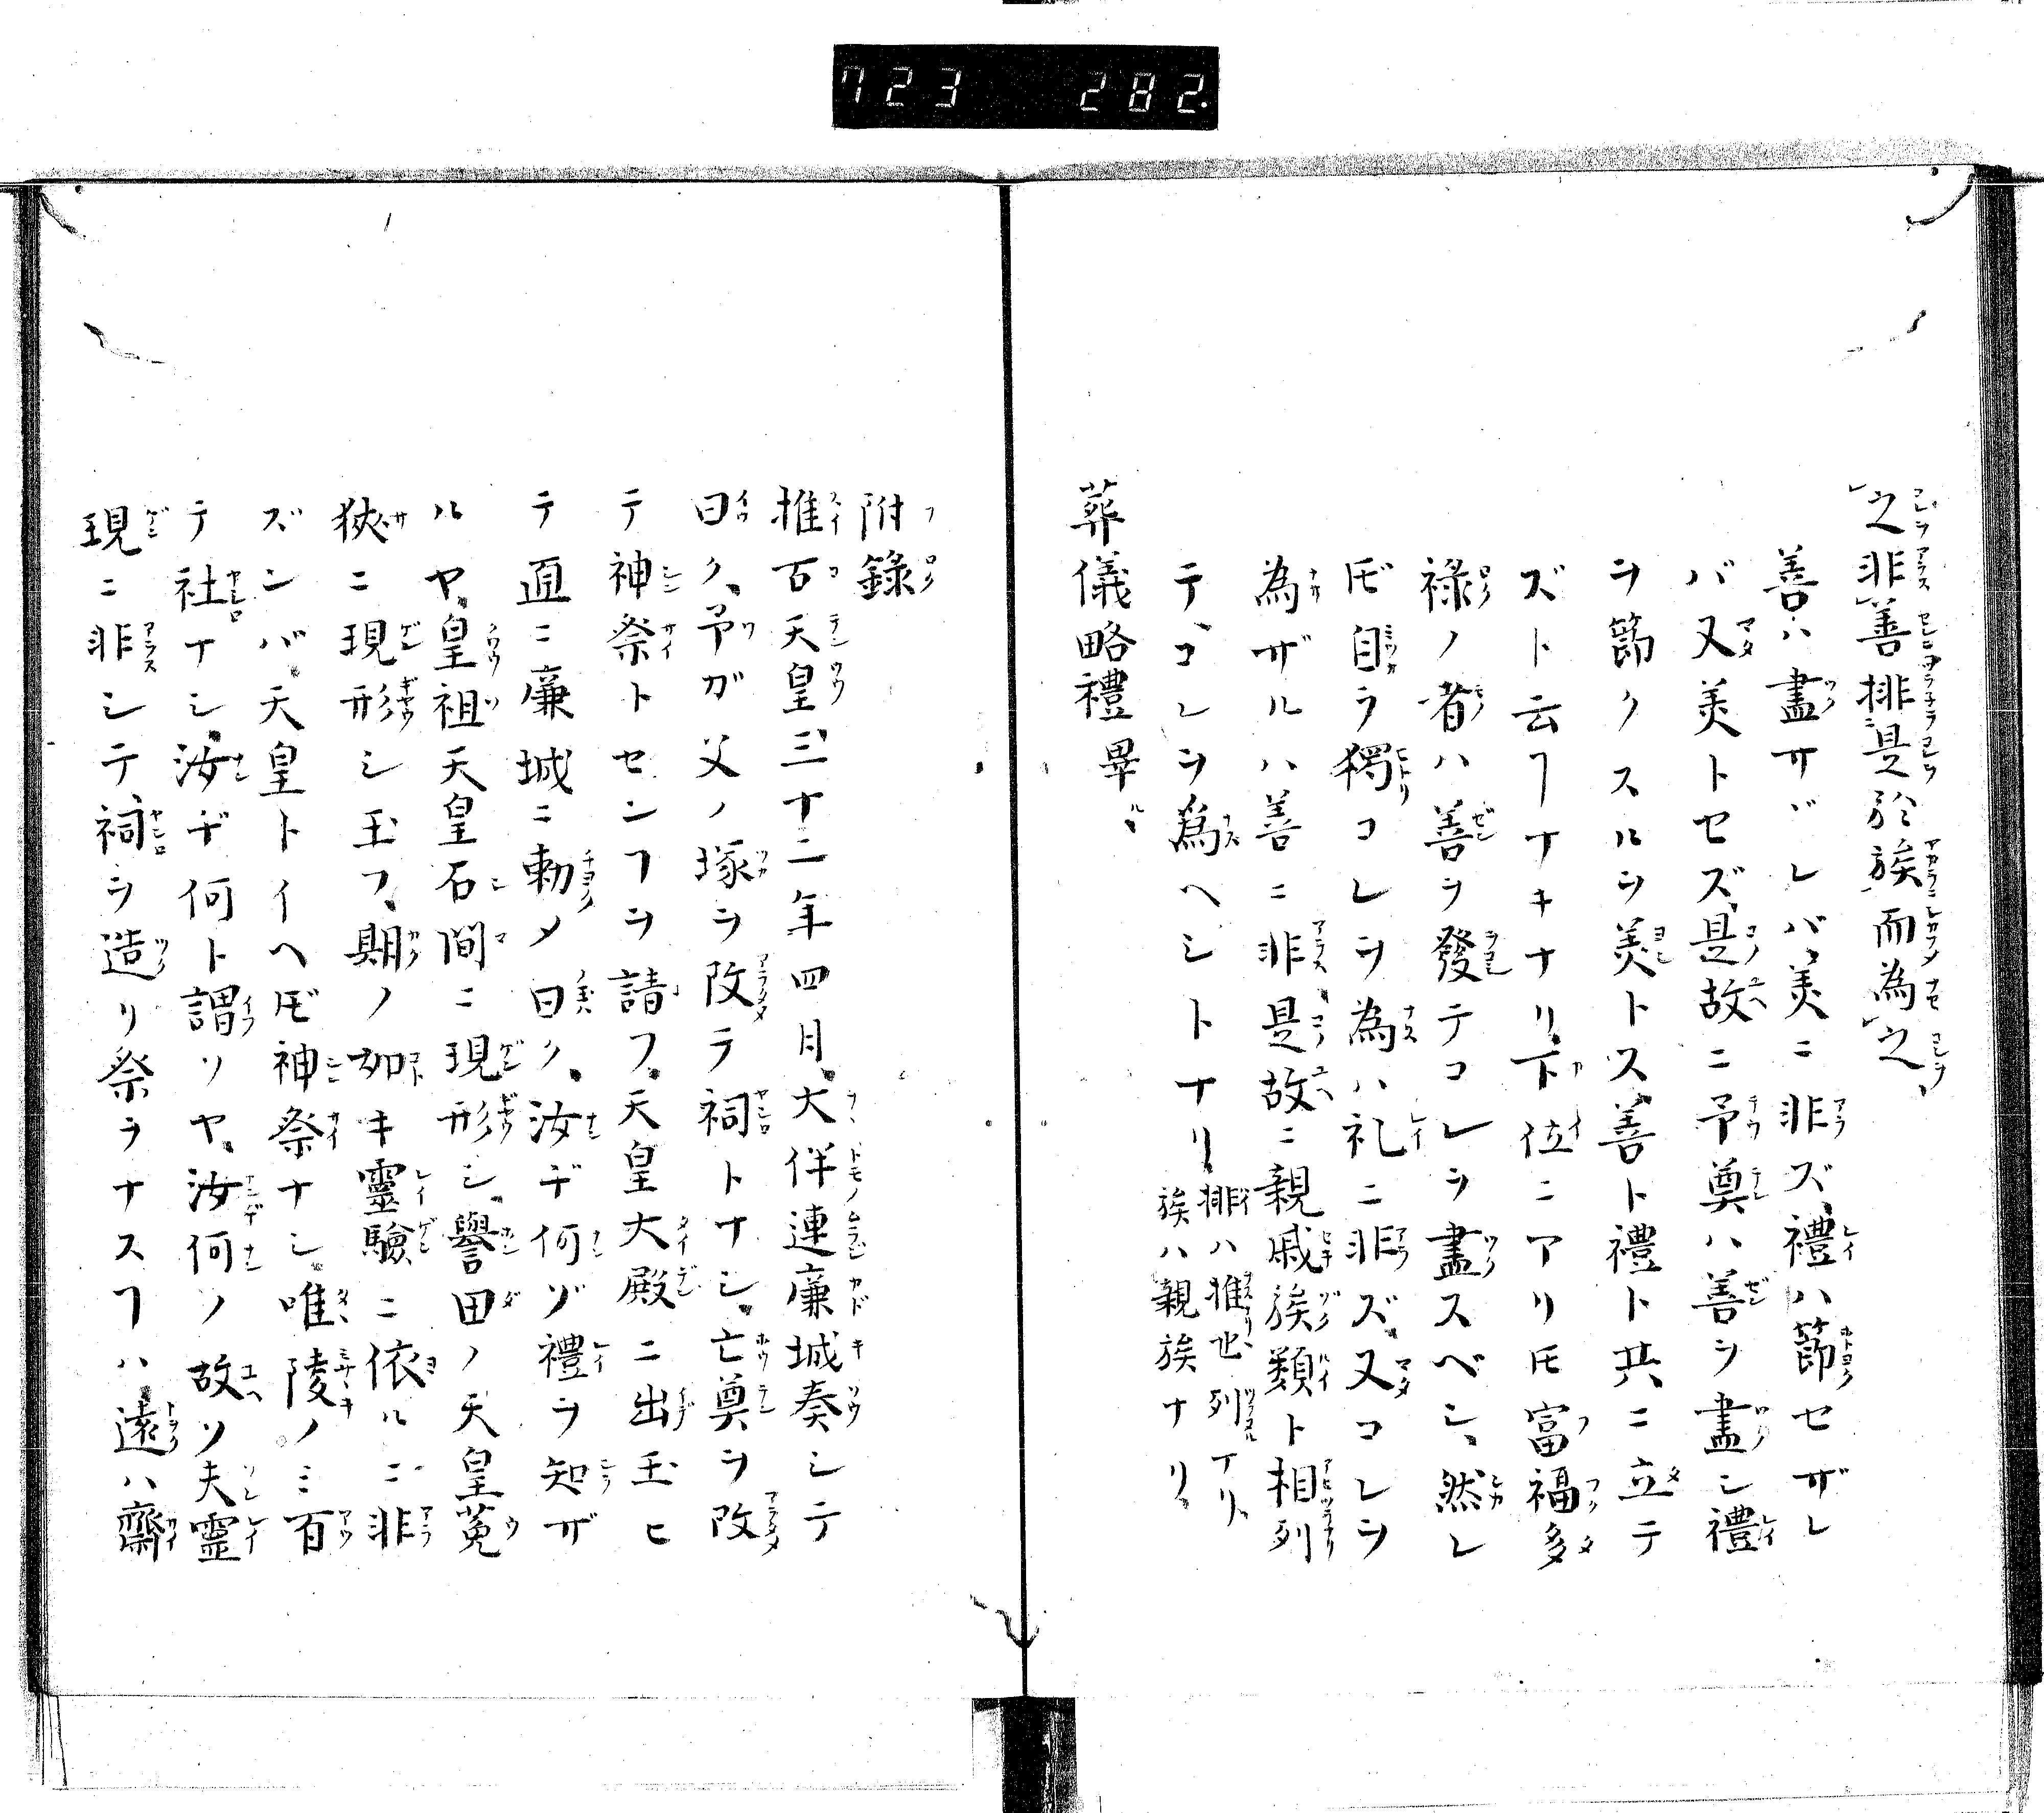 723 282.
之非善排是於族而為之
善ハ盡サヾレバ美ニ非ズ、禮ハ節セザレ
バ又美トセズ、是故ニ予奠ハ善ヲ盡シ禮
ヲ節クスルヲ美トス善ト禮ト共ニ立テ
ズト云ヿナキナリ、下位ニアリ𪜈富福多
祿ノ者ハ善ヲ發テコレヲ盡スベシ、然レ
𪜈自ラ獨コレヲ為ハ礼ニ非ズ、又コレヲ
為ザルハ善ニ非、是故ニ親戚族類ト相列
テ、コレヲ為ヘシトナリ、排ハ推也、列ナリ、
族ハ親族ナリ、
葬儀略禮畢
附錄
推古天皇三十二年四月、大伴連廉城奏シテ
曰ク、予ガ父ノ塚ヲ改テ祠トナシ、亡奠ヲ改
テ神祭トセンヿヲ請フ、天皇大殿ニ出玉ヒ
テ直ニ廉城ニ勅メ曰ク、汝ヂ何ゾ禮ヲ知ザ
ルヤ、皇祖天皇石間ニ現形シ、譽田ノ天皇菟
狹ニ現形シ玉フ、期ノ如キ靈驗ニ依ルニ非
ズンバ、天皇トイヘ𪜈神祭ナシ、唯陵ノミ有
テ社ナシ、汝ヂ何ト謂ソヤ、汝何ノ故ソ夫靈
現ニ非シテ、祠ヲ造リ祭ヲナスヿハ、遠ハ齋